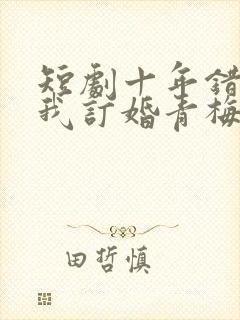 短劇十年錯
我訂婚青梅
田哲慎